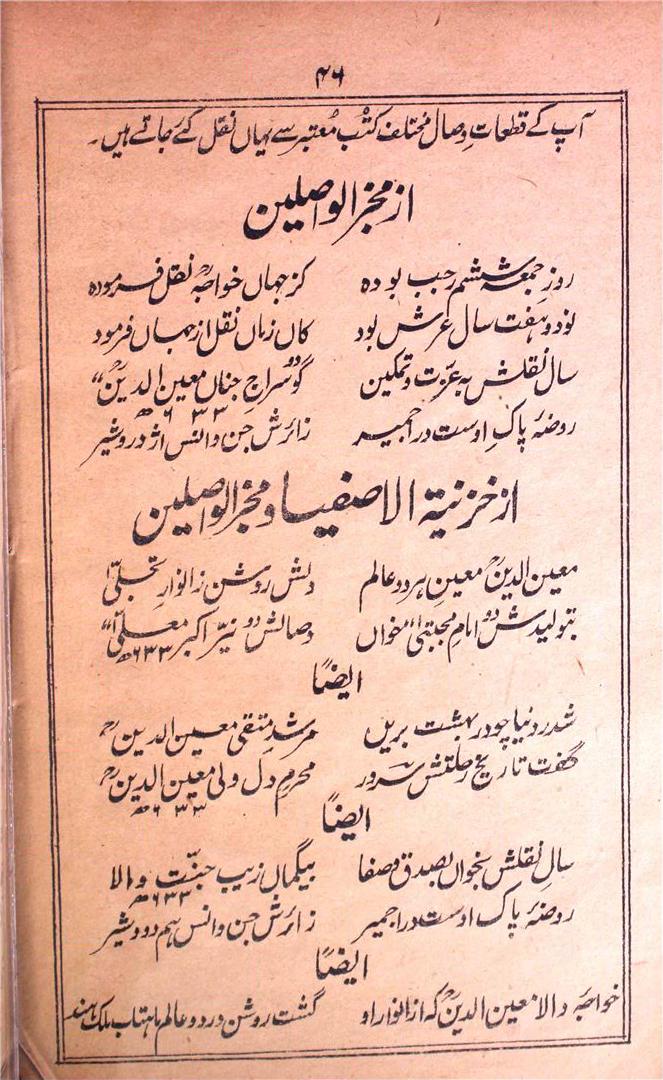 ۴۶
آپ کے قطعاتِ وصال مختلف کتب معتبر سے یہاں نقل کئے جاتے ہیں۔
از مخبر الواصلین
روزِ جمعہ ششم رجب بودہ کز جہاں خواجہؒ نقل فرمودہ
نود و ہفت سال عرش بود کاں زماں نقل از جہاں فرمود
سال نقلش بہ عزت و تمکین گو ”سراجِ جناں معین الدینؒ“
۶۳۳ھ
روضۂ پاکِ اوست در اجمیر زائرش جن و انس اژدر و شیر
از خزنیۃ الاصفیا و مخبر الواصلین
معین الدینؒ معینِ ہر دو عالم دلش روشن ز انوارِ تجلّیٰ
بتولیدش ”امامِ مجتبیٰ“ خواں وصالش ”نیّر اکبر معلّیٰ“
۶۳۳ھ
ایضًا
شد ز دنیا چو در بہشت بریں مرشدِ متقی معین الدینؒ
گفت تاریخ رحلتش سرور محرمِ دل ولی معین الدینؒ
۶۳۳ھ
ایضًا
سالِ نقلش بخواں بصدق و صفا بیگماں زیب جنّت والا
۶۳۳ھ
روضۂ پاک اوست در اجمیر زائرش جن و انس ہم دد و شیر
ایضًا
خواجۂ والا معین الدینؒ کہ از انوار او گشت روشن در دو عالم ماہتاب ملک ہند